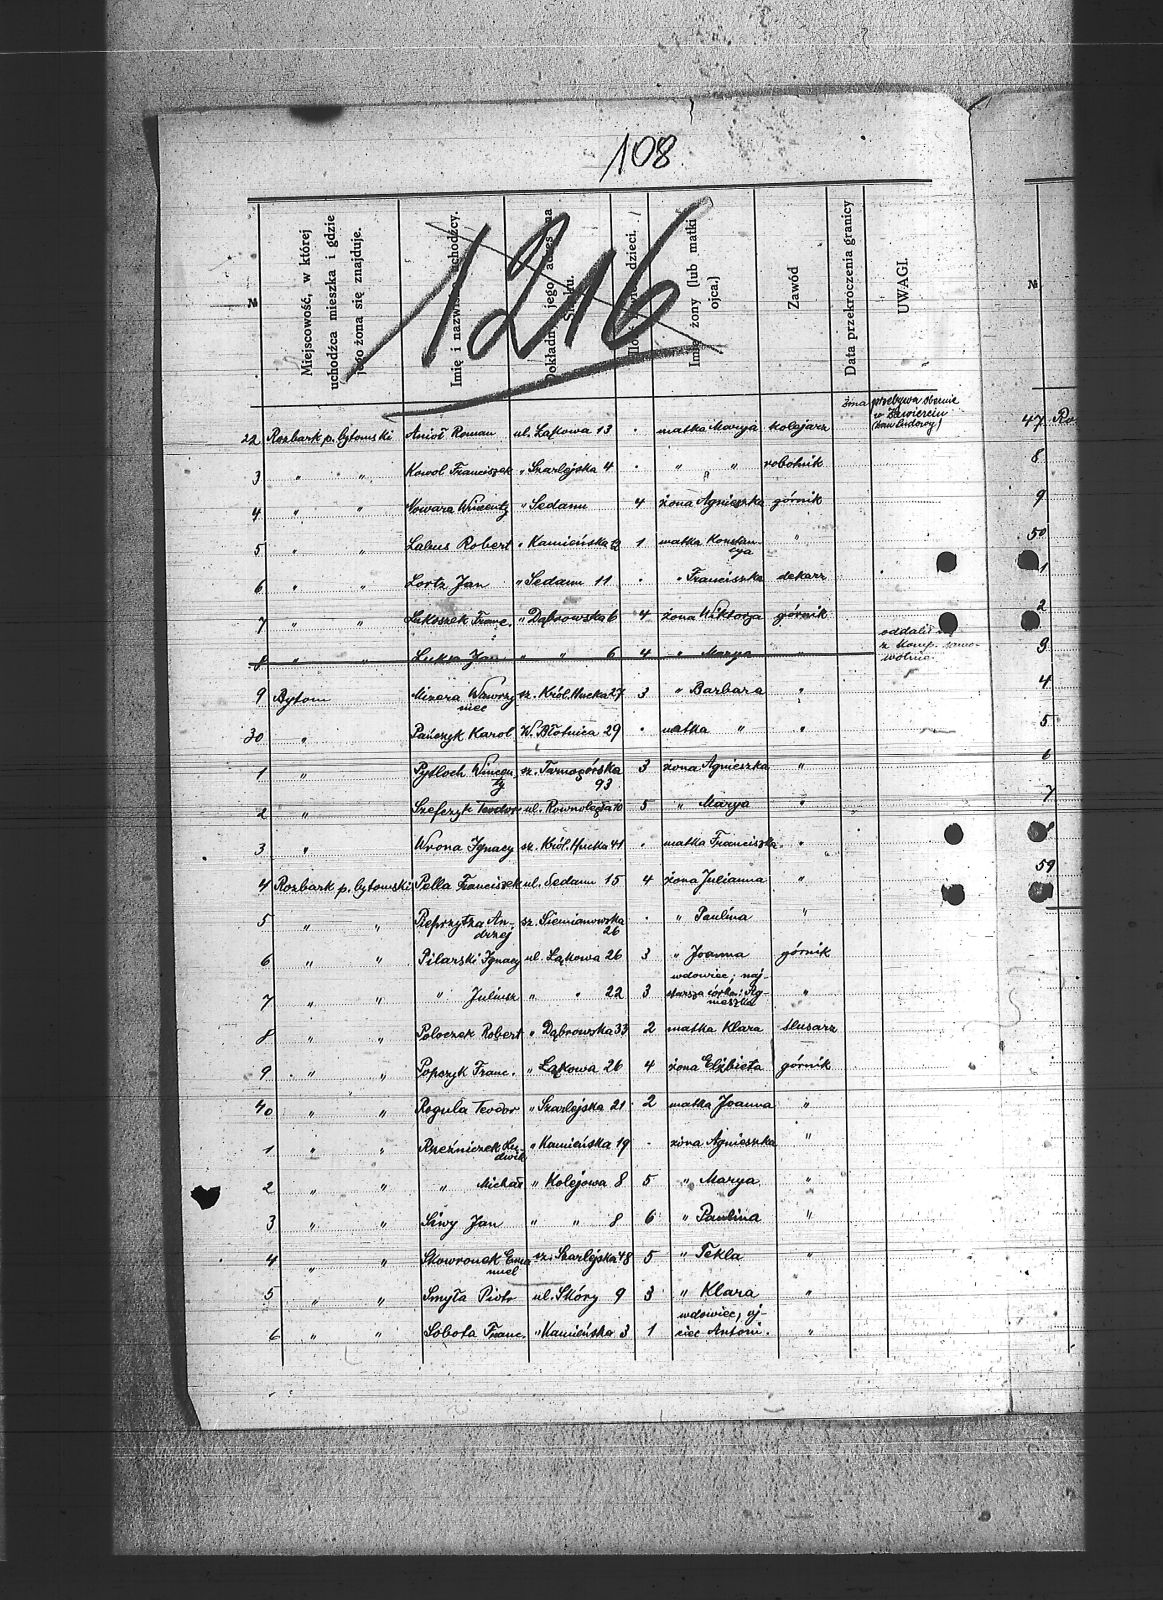 108
1216
№
Miejscowość, w której uchodźca mieszka i gdzie jego żona się znajduje.
Imię i nazwis uchodźcy.
Dokładny jego adres na Śląsku.
dzieci.
Imię żony (lub matki ojca.)
Zawód
Data przekroczenia granicy
UWAGI.
№
przebywa obecnie
w Zawierciu
22 Rozbark p. bytomski Anioł Roman ul. Łąkowa 13 - matka Marya kolejarz
3 " " Kowol Franciszek " Szarlejska 4 - " " robotnik
4 " " Nowara Wincenty " Sedanu 4 żona Agnieszka górnik
5 " " Labus Robert " Kamieńska 12 1 matka Konstancya "
6 " " Lortz Jan " Sedanu 11 - " Franciszka dekarz
7 " " Lukoszek Franc. " Dąbrowska 6 4 żona Wiktorya górnik
8 " " Luksa Jan " " 6 4 " Marya " oddalił się
z komp. samo-
wolnie
9 Bytom Mizera Wawrzy sz. Król. Hucka 27 3 " Barbara "
niec
30 " Pańczyk Karol W. Błotnica 29 - matka " "
1 " Pytloch Wincen sz. Tarnogórska 3 żona Agnieszka "
ty 93
2 " Szefczyk Teodor ul. Równoległa 10 5 " Marya "
3 " Wrona Ignacy sz. Król. Hucka 41 - matka Franciszka "
4 Rozbark p. bytomski Pella Franciszek ul. Sedanu 15 4 żona Julianna "
5 " " Pieprzytza An- sz. Siemianowska - " Paulina "
drzej 26
6 " " Pilarski Ignacy ul. Łąkowa 26 3 " Joanna górnik
wdowiec; naj-
7 " " " Juliusz " " 22 3 starsza córka: Ag- "
nieszka
8 " " Poloczek Robert " Dąbrowska 33 2 matka Klara ślusarz
9 " " Popczyk Franc. " Łąkowa 26 4 żona Elżbieta górnik
40 " " Rogula Teodor " Szarlejska 21 2 matka Joanna "
1 " " Rzeźniczek Lu- " Kamieńska 19 - żona Agnieszka "
dwik
2 " " " Michał " Kolejowa 8 5 " Marya "
3 " " Siwy Jan " " 8 6 " Paulina "
4 " " Skowronek Ema sz. Szarlejska 48 5 " Tekla "
nuel
5 " " Smyła Piotr ul. Skóry 9 3 " Klara "
wdowiec, oj-
6 " " Sobota Franc. " Kamieńska 3 1 ciec Antoni. "
47 Ro
8
9
50
1
2
3
4
5
6
7
59